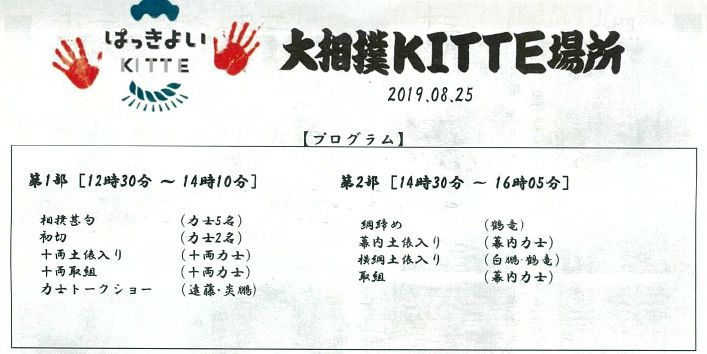 はっきよい
KITTE
大相撲KITTE場所
2019.08.25
【プログラム】
第1部 [12時30分 ～ 14時10分]
相撲甚句 (力士5名)
初切 (力士2名)
十両土俵入り (十両力士)
十両取組 (十両力士)
力士トークショー (遠藤・炎鵬)
第2部 [14時30分 ～ 16時05分]
綱締め (鶴竜)
幕内土俵入り (幕内力士)
横綱土俵入り (白鵬・鶴竜)
取組 (幕内力士)